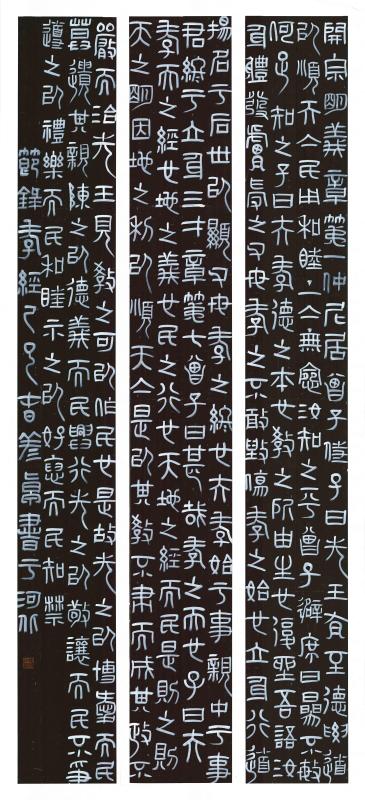 開宗明義章第一仲尼居曾子侍子曰先王有至德要道
以順天下民用和睦上下無怨汝知之乎曾子避席曰參不敏
何足知之子曰夫孝德之本也教之所由生也復坐吾語汝
身體髮膚受之父母孝之不敢毀傷孝之始也立身行道
揚名于后世以顯父母孝之終也夫孝始于事親中于事
君終于立身三才章第七曾子曰甚哉孝之大也子曰夫
孝天之經也地之義也民之行也天地之經而民是則之則
天之明因地之利以順天下是以其教不肅而成其政不
嚴而治先王見教之可以化民也是故先之以博愛而民
莫遺其親陳之以德義而民興行先之以敬讓而民不爭
導之以禮樂而民和睦示之以好惡而民知禁
節錄孝經書于河北